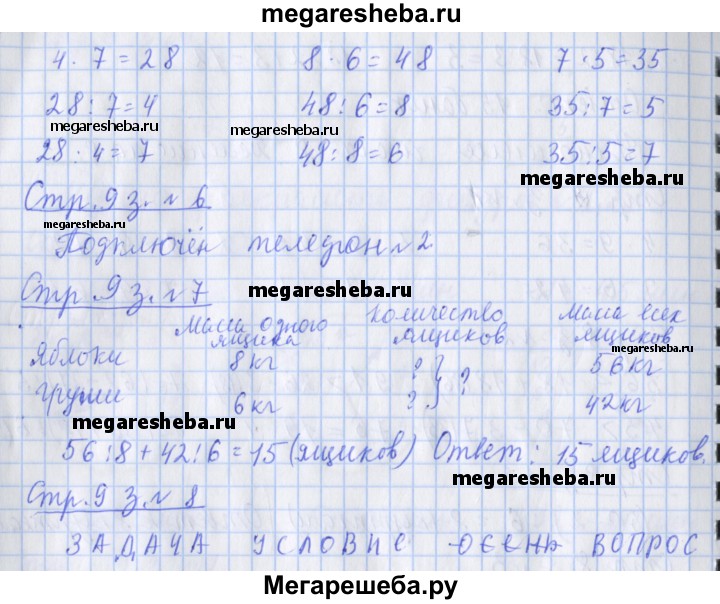 megaresheba.ru
4 · 7 = 28 8 · 6 = 48 7 · 5 = 35
28 : 7 = 4 48 : 6 = 8 35 : 7 = 5
megaresheba.ru megaresheba.ru
28 : 4 = 7 48 : 8 = 6 35 : 5 = 7
megaresheba.ru
Стр. 9 з. № 6
megaresheba.ru
Подключён телефон № 2
Стр. 9 з. № 7 megaresheba.ru
Масса одного ящика Количество ящиков Масса всех ящиков
megaresheba.ru
Яблоки 8 кг ? } ? 56 кг
Груши 6 кг ? 42 кг
megaresheba.ru
56 : 8 + 42 : 6 = 15 (ящиков) Ответ: 15 ящиков.
megaresheba.ru
Стр. 9 з. № 8
ЗАДАЧА УСЛОВИЕ ОСЕНЬ ВОПРОС
Мегарешеба.ру